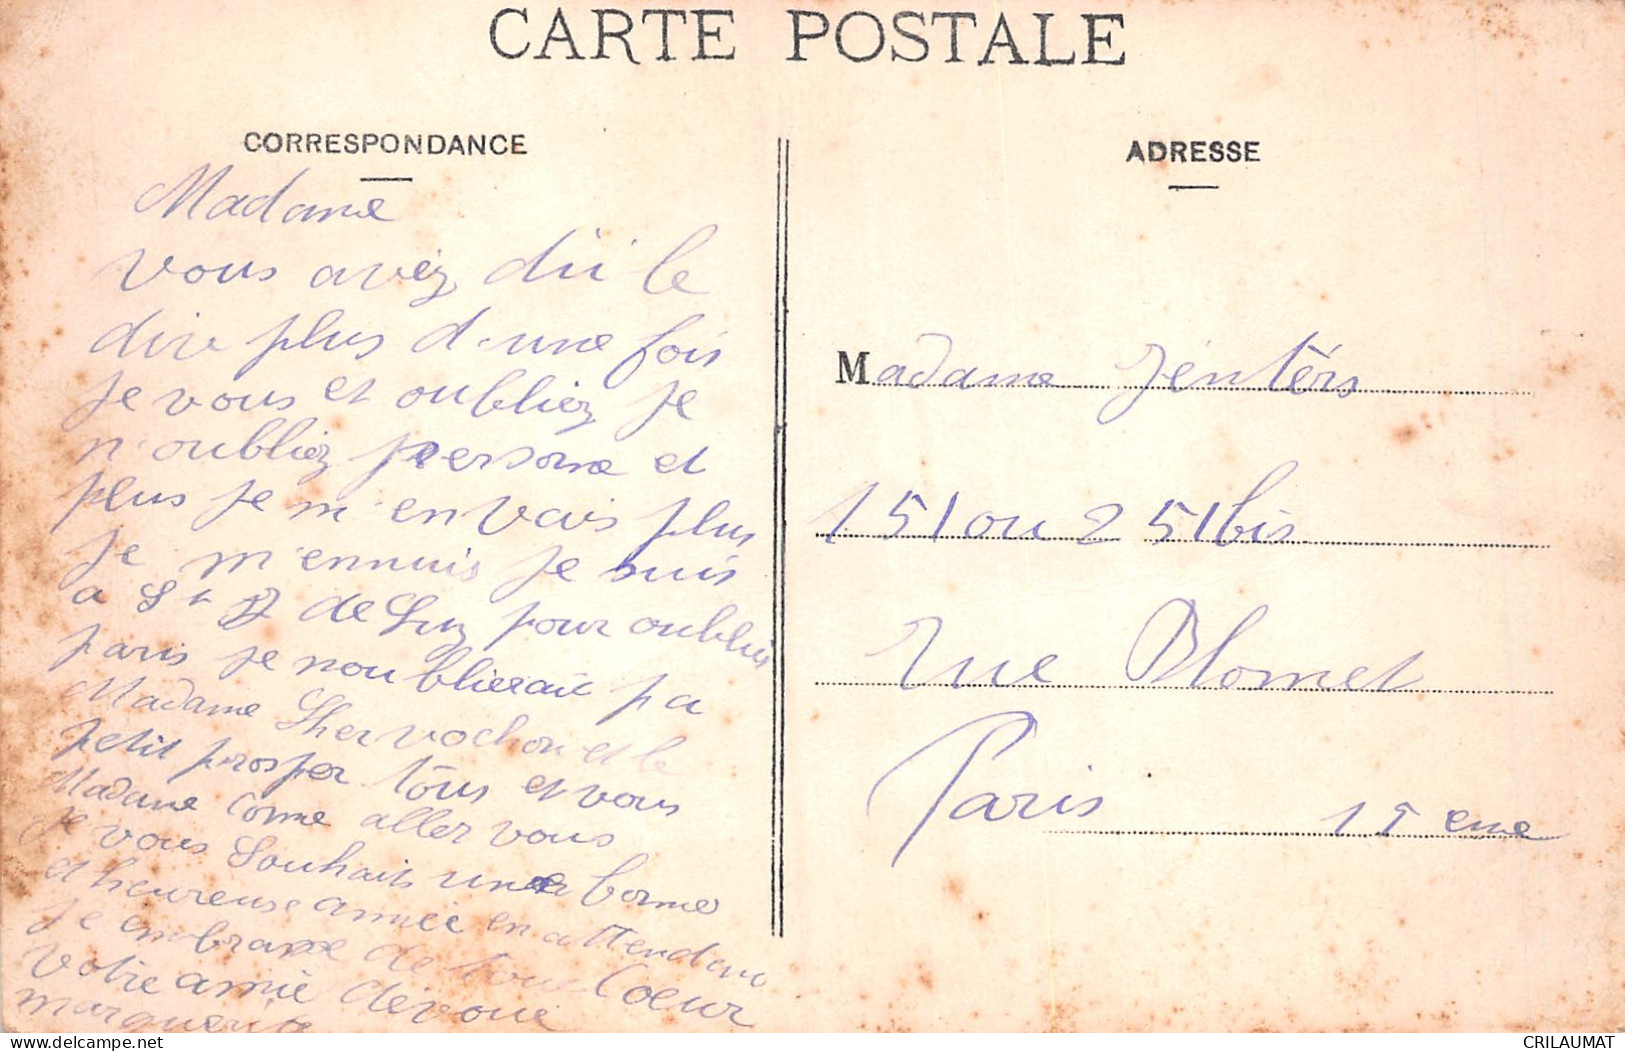 CARTE POSTALE
CORRESPONDANCE
Madame
vous avéz dû le
dire plus d'une fois
je vous et oubliez je
n'oubliez personne et
plus je m'en vais plus
je m'ennuis je suis
a St J de Luz pour oublier
paris je nou blierait pa
Madame et le
petit prosper tous et vous
Madame Come aller vous
je vous Souhaits une bonne
et heureuse année en attendant
je embrasse de tout Coeur
votre amie dévoué
marguerite
ADRESSE
Madame Jéntérs
151 ou 251 bis
rue Blomet
Paris 15 eme
www.delcampe.net
CRILAUMAT